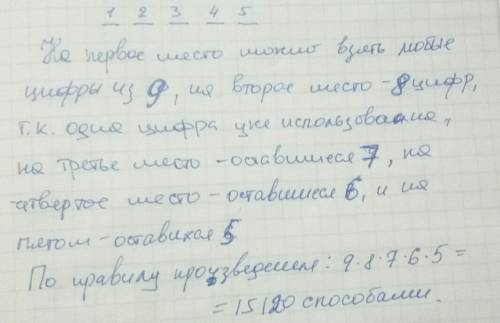 1 2 3 4 5
На первое место можно взять любые
цифры из 9, на второе место - 8 цифр,
т.к. одна цифра уже использована,
на третье место - оставшиеся 7, на
четвертое место - оставшиеся 6, и на
пятом - оставшихся 5
По правилу произведения: 9·8·7·6·5 =
= 15120 способами.